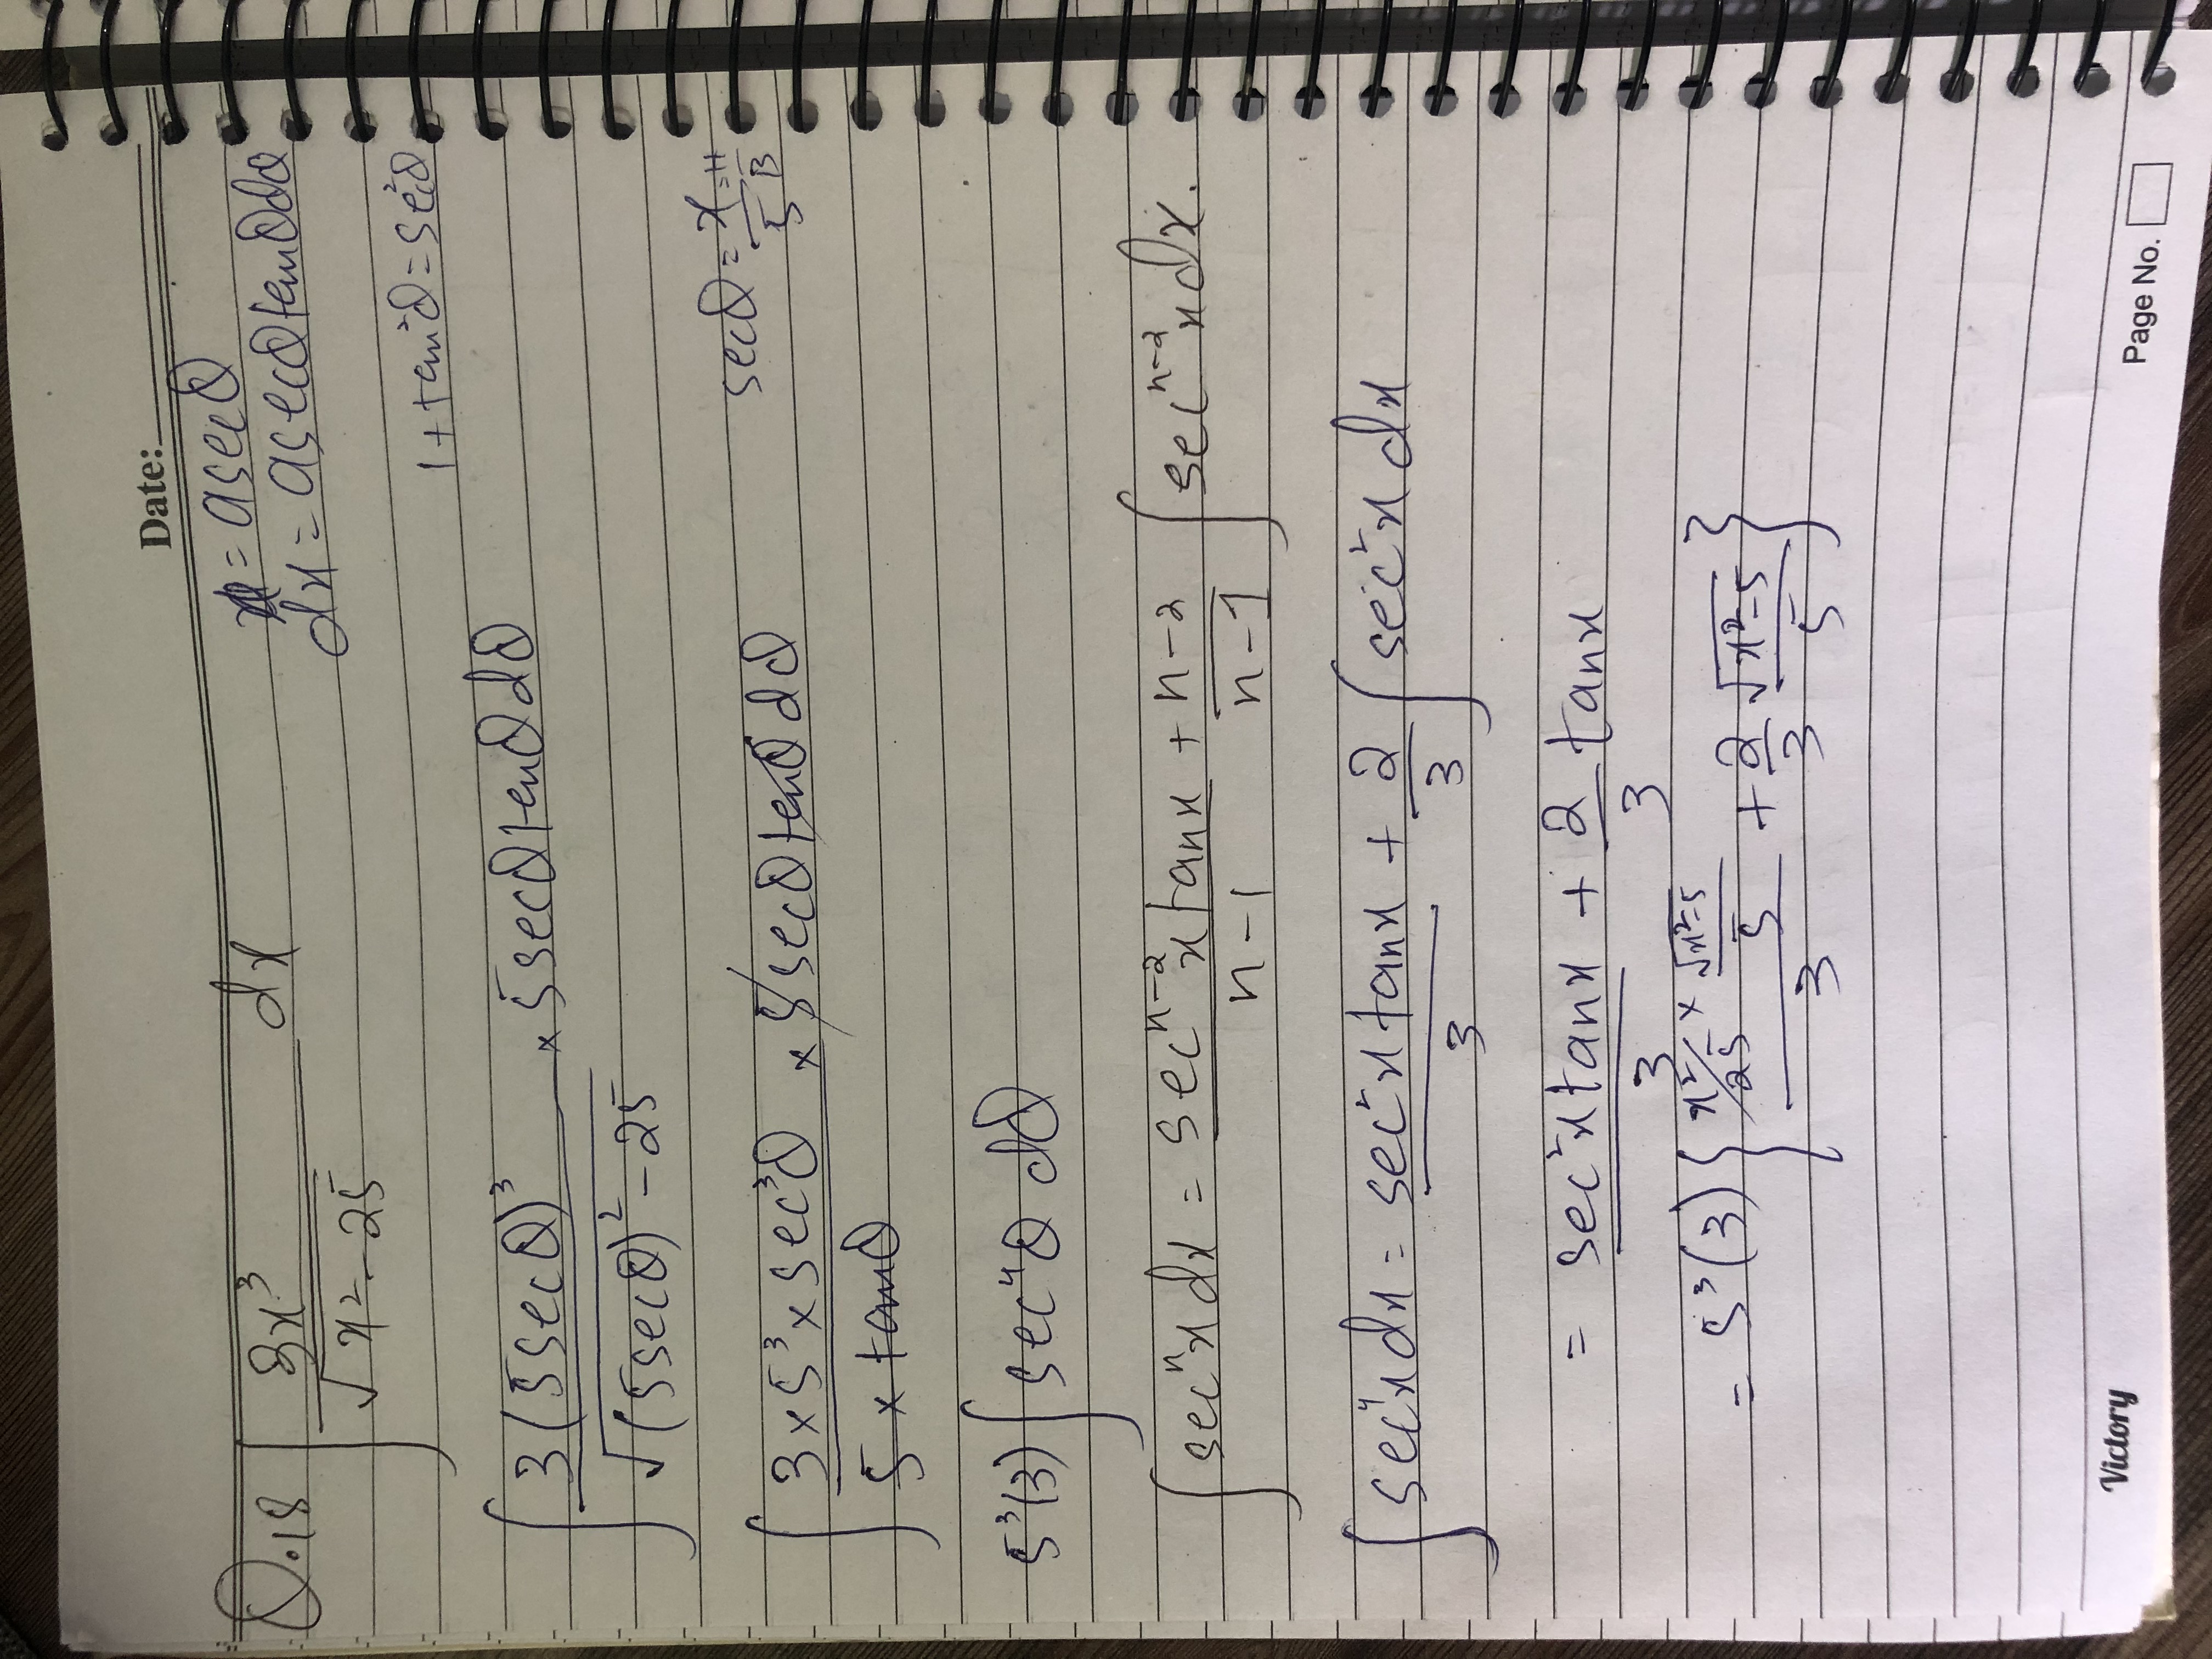 Date:
Q.18 ∫ 3x³/√(x²-25) dx
x = asecθ
dx = asecθtanθdθ
1+tan²θ = sec²θ
∫ 3(5secθ)³/√((5secθ)²-25) × 5secθtanθdθ
secθ = x/5 = H/B
∫ (3×5³×sec³θ)/(5×tanθ) × 5secθtanθdθ
5³(3)∫sec⁴θ dθ
∫secⁿx dx = (secⁿ⁻²x tanx)/(n-1) + (n-2)/(n-1) ∫secⁿ⁻²x dx.
∫sec⁴x dx = (sec²x tanx)/3 + 2/3 ∫sec²x dx
= (sec²x tanx)/3 + 2/3 tanx
= 5³(3){(x²/25 × √(x²-5)/5)/3 + 2/3 √(x²-5)/5}
Victory
Page No.